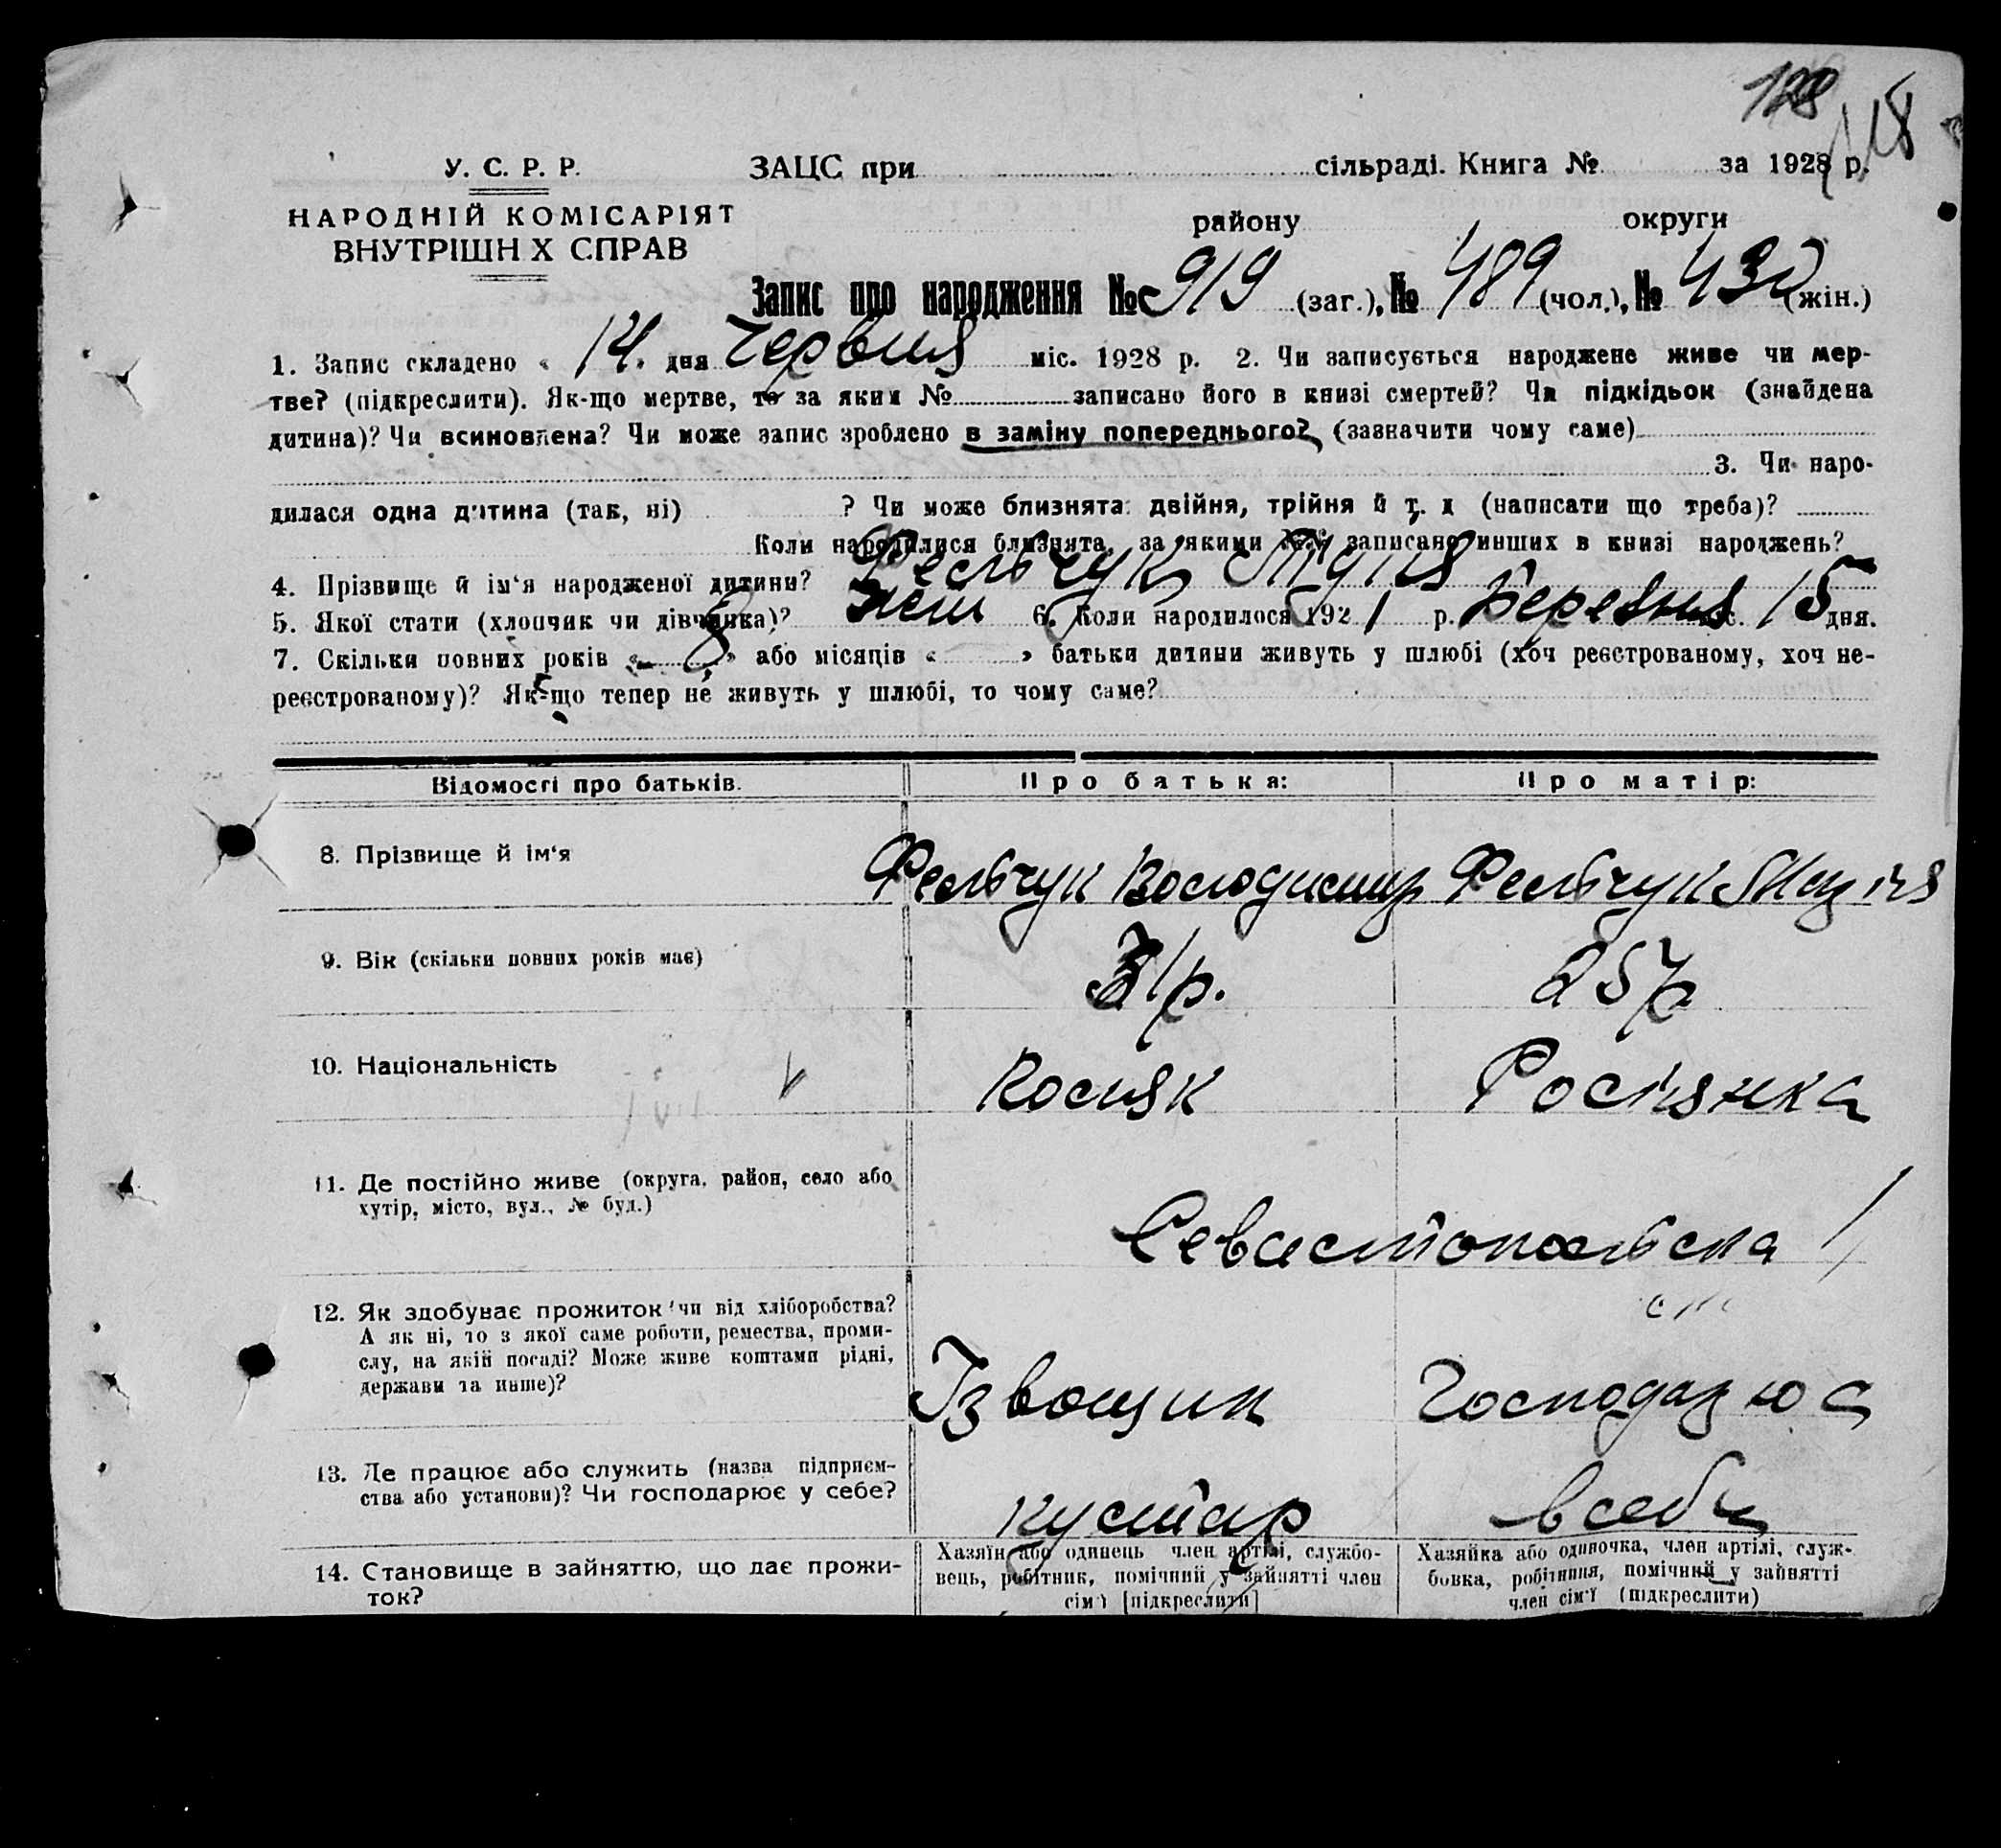 128
118
У. С. Р. Р. ЗАЦС при сільраді. Книга № за 1928 р.
НАРОДНІЙ КОМІСАРІЯТ
ВНУТРІШН Х СПРАВ
району округи
Запис про народження № 919 (заг.), № 489 (чол.), № 430 (жін.)
1. Запис складено « 14 » дня Червня міс. 1928 р. 2. Чи записується народжене живе чи мер-
тве? (підкреслити). Як-що мертве, то за яким № записано його в книзі смертей? Чи підкідьок (знайдена
дитина)? Чи всиновлена? Чи може запис зроблено в заміну попереднього? (зазначити чому саме)
3. Чи наро-
дилася одна дитина (так, ні) ? Чи може близнята: двійня, трійня й т. д (написати що треба)?
Коли народилися близнята, за якими №№ записано инших в книзі народжень?
4. Прізвище й ім‘я народженої дитини? Фельчук
5. Якої стати (хлопчик чи дівчинка)? жін 6. Коли народилося 1921 р. Березня с. 15 дня.
7. Скільки повних років « 8 » або місяців « » батьки дитини живуть у шлюбі (хоч реєстрованому, хоч не-
реєстрованому)? Як-що тепер не живуть у шлюбі, то чому саме?
Відомості про батьків. Про батька: Про матір:
8. Прізвище й ім‘я Фельчук Володимир Фельчук Марія
9. Вік (скільки повних років має) 31р. 25р
10. Національність Росияк Росіянка
11. Де постійно живе (округа, район, село або
хутір, місто, вул., № буд.)
Севастопольска
12. Як здобуває прожиток чи від хліборобства?
А як ні, то з якої саме роботи, ремества, проми-
слу, на якій посаді? Може живе коштами рідні,
держави та инше)?
Ізвощик Господарює
13. Де працює або служить (назва підприєм-
ства або установи)? Чи господарює у себе?
кустар в себе
14. Становище в зайняттю, що дає прожи-
ток?
Хазяїн або одинець член артілі, службо-
вець, робітник, помічний у зайнятті член
сім‘ї [підкреслити]
Хазяйка або одиночка, член артілі, служ-
бовка, робітниця, помічний у зайнятті
член сім‘ї (підкреслити)